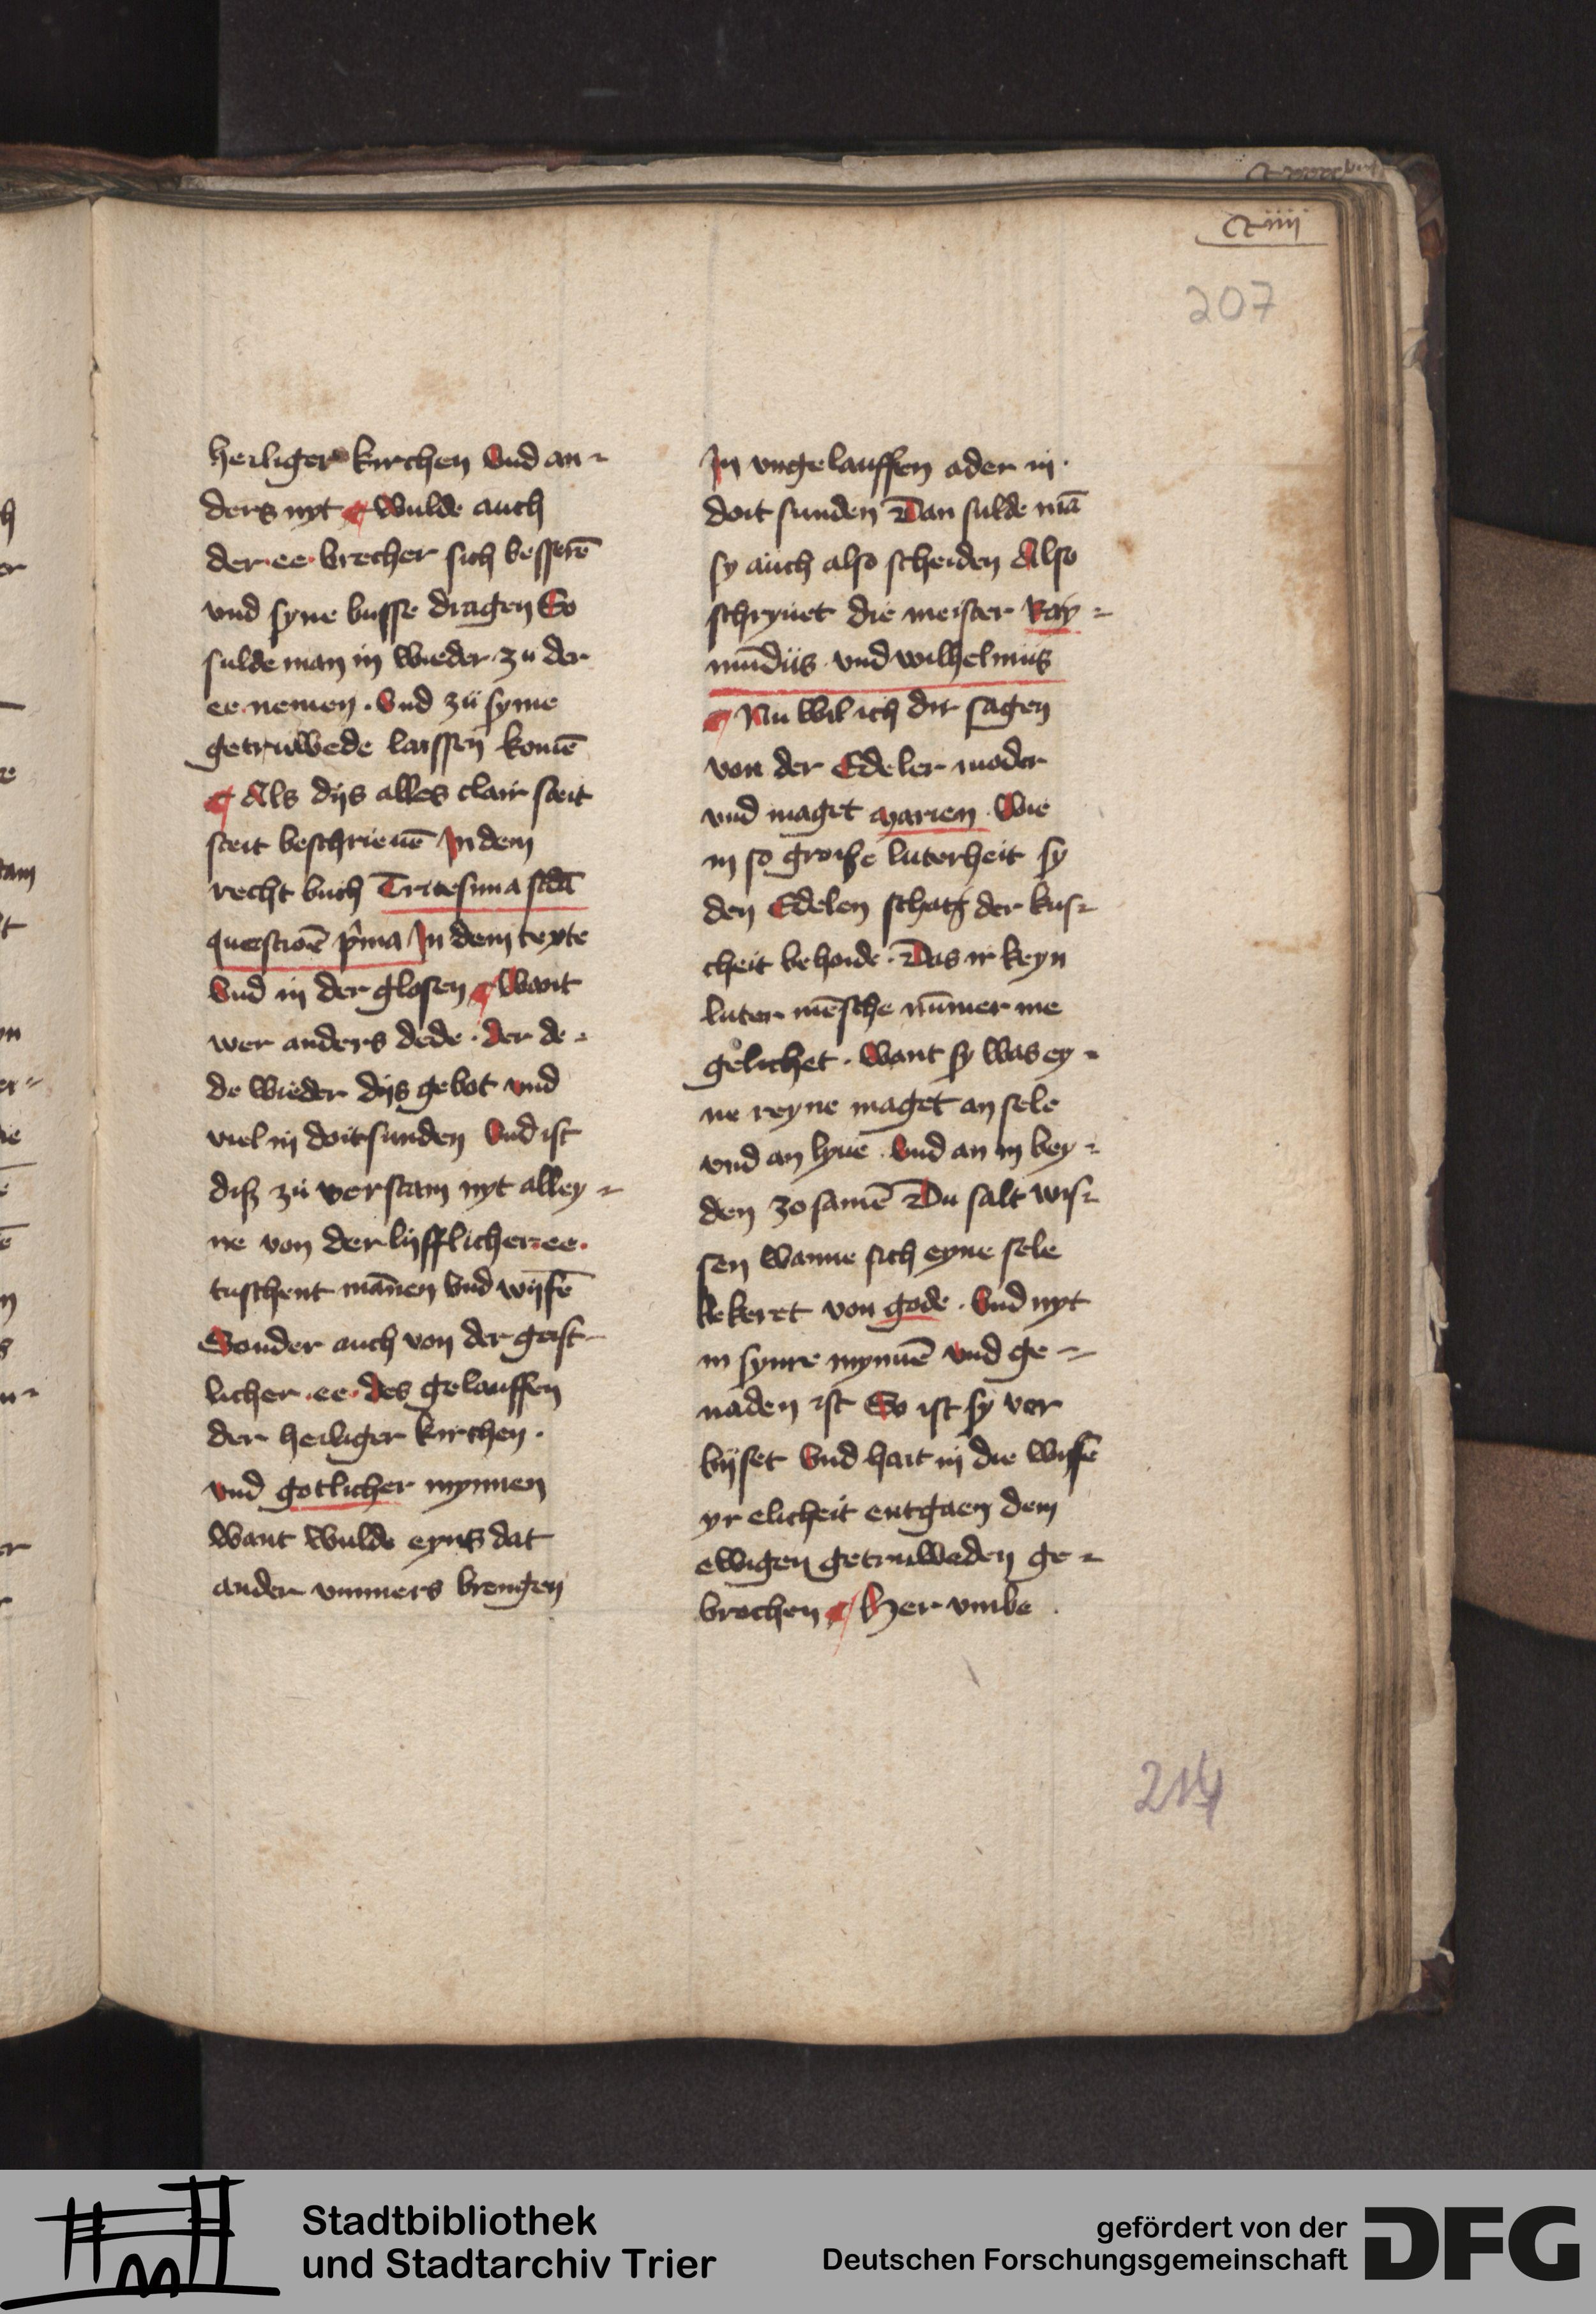 CCiiij
207
heiliger kirchen Vnd an-
ders nyt ¶ Wulde auch
der ee brecher sich besserē
vnd syne busse dragen So
sulde man in wieder zu der
ee nemen . Vnd zü syme
getruwede laissen komē
¶ Als dijs alles clair steit
steit beschrieuē In dem
recht buch Tricesima scdā
questionē prima In dem texte
Vnd in der glosen ¶ Want
wer anders dede . der de-
de wieder dijs gebot vnd
viel in doitsunden Vnd ist
diß zü verstain nyt alley-
ne von der lijfflicher ee .
tuschent mānen Vnd wijfē
Sonder auch von der geist-
licher .ee. des gelauffen
der heiliger kirchen .
vnd gotlicher mynnen
Want wulde eyns dat
ander vmmers brengen
In vngelauffen ader in .
doit sunden Dan sulde mā
sy auch also scheiden Also
schryuet die meister Ray-
mūdüs vnd wilhelmüs
¶ Nu wil ich dir sagen
von der Edeler moder
vnd maget marien . Wie
in so groiße luterheit sy
den Edelen schatz der kus-
cheit behoide . Das ir keyn
luter mēsche nūmer me
gelichet . Want sy was ey-
ne reyne maget an sele
vnd an lyue . Vnd an in bey-
den zo samē Du salt wis-
sen wanne sich eyne sele
bekeret von gode . Vnd nyt
in synre mynnē vnd ge-
naden ist So ist sy ver
bijset Vnd hait in die wijse
yr elicheit entgaen dem
ewigen getruweden ge-
brochen ¶ Her vmbe .
214
Stadtbibliothek
und Stadtarchiv Trier
gefördert von der
Deutschen Forschungsgemeinschaft
DFG